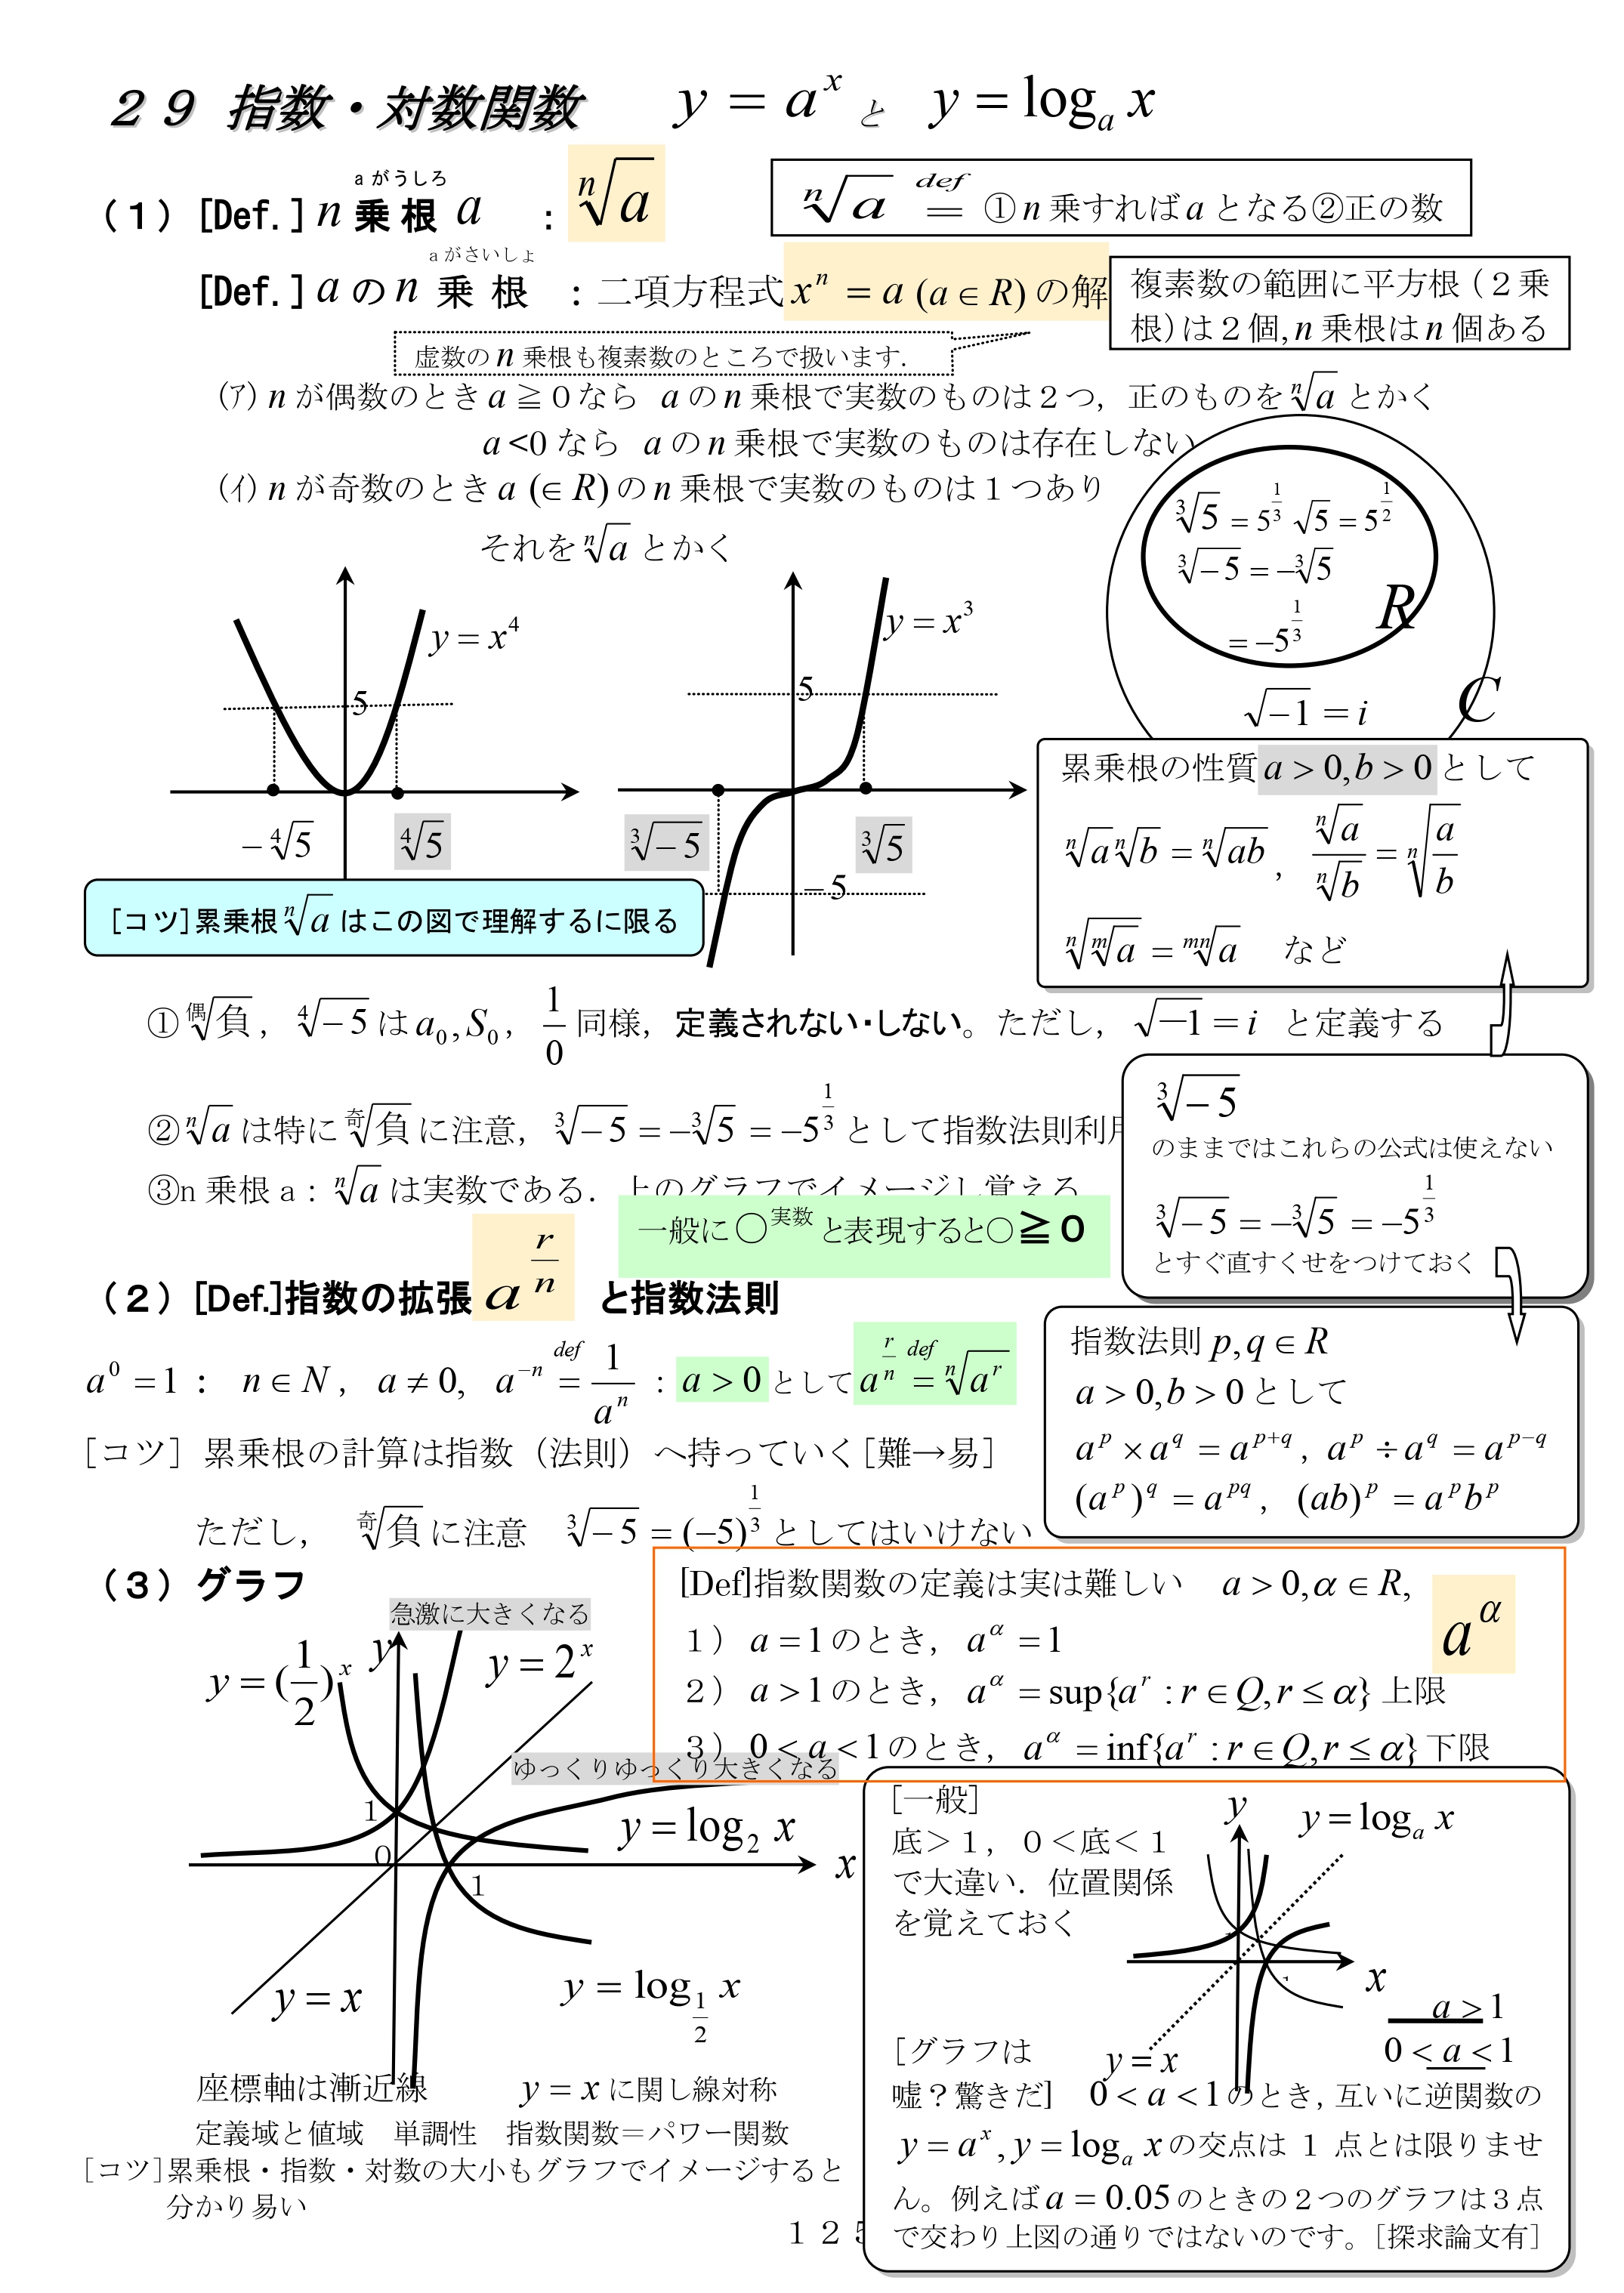 ２９ 指数・対数関数　y = a^x と y = log_a x
a がうしろ
（１）[Def.] n 乗 根 a ： ⁿ√a
ⁿ√a =(def) ①n 乗すればa となる②正の数
a がさいしょ
[Def.] a の n 乗 根 ：二項方程式 x^n = a (a ∈ R) の解
複素数の範囲に平方根（２乗
根）は２個, n 乗根は n 個ある
虚数の n 乗根も複素数のところで扱います．
(ア) n が偶数のとき a ≧０なら a の n 乗根で実数のものは２つ，正のものを ⁿ√a とかく
a <0 なら a の n 乗根で実数のものは存在しない
(イ) n が奇数のとき a (∈ R) の n 乗根で実数のものは１つあり
それを ⁿ√a とかく
³√5 = 5^(1/3) √5 = 5^(1/2)
³√−5 = −³√5
= −5^(1/3)
R
√−1 = i
C
y = x^4
5
−⁴√5
⁴√5
y = x^3
5
³√−5
³√5
−5
[コツ]累乗根 ⁿ√a はこの図で理解するに限る
累乗根の性質 a > 0, b > 0 として
ⁿ√a ⁿ√b = ⁿ√ab , ⁿ√a / ⁿ√b = ⁿ√(a/b)
ⁿ√(ᵐ√a) = ᵐⁿ√a など
① 偶√負 ， ⁴√−5 は a_0, S_0 ， 1/0 同様，定義されない・しない。ただし， √−1 = i と定義する
② ⁿ√a は特に 奇√負 に注意， ³√−5 = −³√5 = −5^(1/3) として指数法則利用
③n 乗根 a： ⁿ√a は実数である． 上のグラフでイメージし覚える
³√−5
のままではこれらの公式は使えない
³√−5 = −³√5 = −5^(1/3)
とすぐ直すくせをつけておく
一般に○^実数 と表現すると○≧０
（２）[Def.]指数の拡張 a^(r/n) と指数法則
a^0 = 1 ： n ∈ N ， a ≠ 0, a^−n =(def) 1/a^n ： a > 0 として a^(r/n) =(def) ⁿ√a^r
指数法則 p, q ∈ R
a > 0, b > 0 として
a^p × a^q = a^(p+q) , a^p ÷ a^q = a^(p−q)
(a^p)^q = a^pq , (ab)^p = a^p b^p
［コツ］累乗根の計算は指数（法則）へ持っていく[難→易]
ただし， 奇√負 に注意 ³√−5 = (−5)^(1/3) としてはいけない
（３）グラフ
[Def]指数関数の定義は実は難しい a > 0, α ∈ R,
a^α
１） a = 1 のとき， a^α = 1
２） a > 1 のとき， a^α = sup{a^r : r ∈ Q, r ≤ α} 上限
３） 0 < a < 1 のとき， a^α = inf{a^r : r ∈ Q, r ≤ α} 下限
急激に大きくなる
y = (1/2)^x
y
y = 2^x
ゆっくりゆっくり大きくなる
1
0
1
y = log_2 x
x
y = x
y = log_(1/2) x
座標軸は漸近線　y = x に関し線対称
定義域と値域　単調性　指数関数＝パワー関数
［コツ］累乗根・指数・対数の大小もグラフでイメージすると
分かり易い
［一般］
底＞１，０＜底＜１
で大違い．位置関係
を覚えておく
y
y = log_a x
x
y = x
a > 1
0 < a < 1
［グラフは
嘘？驚きだ］ 0 < a < 1 のとき, 互いに逆関数の
y = a^x, y = log_a x の交点は 1 点とは限りませ
ん。例えば a = 0.05 のときの２つのグラフは３点
で交わり上図の通りではないのです。［探求論文有］
１２５